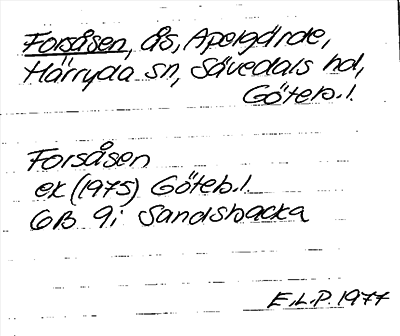 Forsåsen, ås, Apelgärde,
Härryda sn, Sävedals hd,
Göteb. l.
Forsåsen
ek (1975) Göteb. l.
6B 9i Sandsbacka
E.L.P. 1977